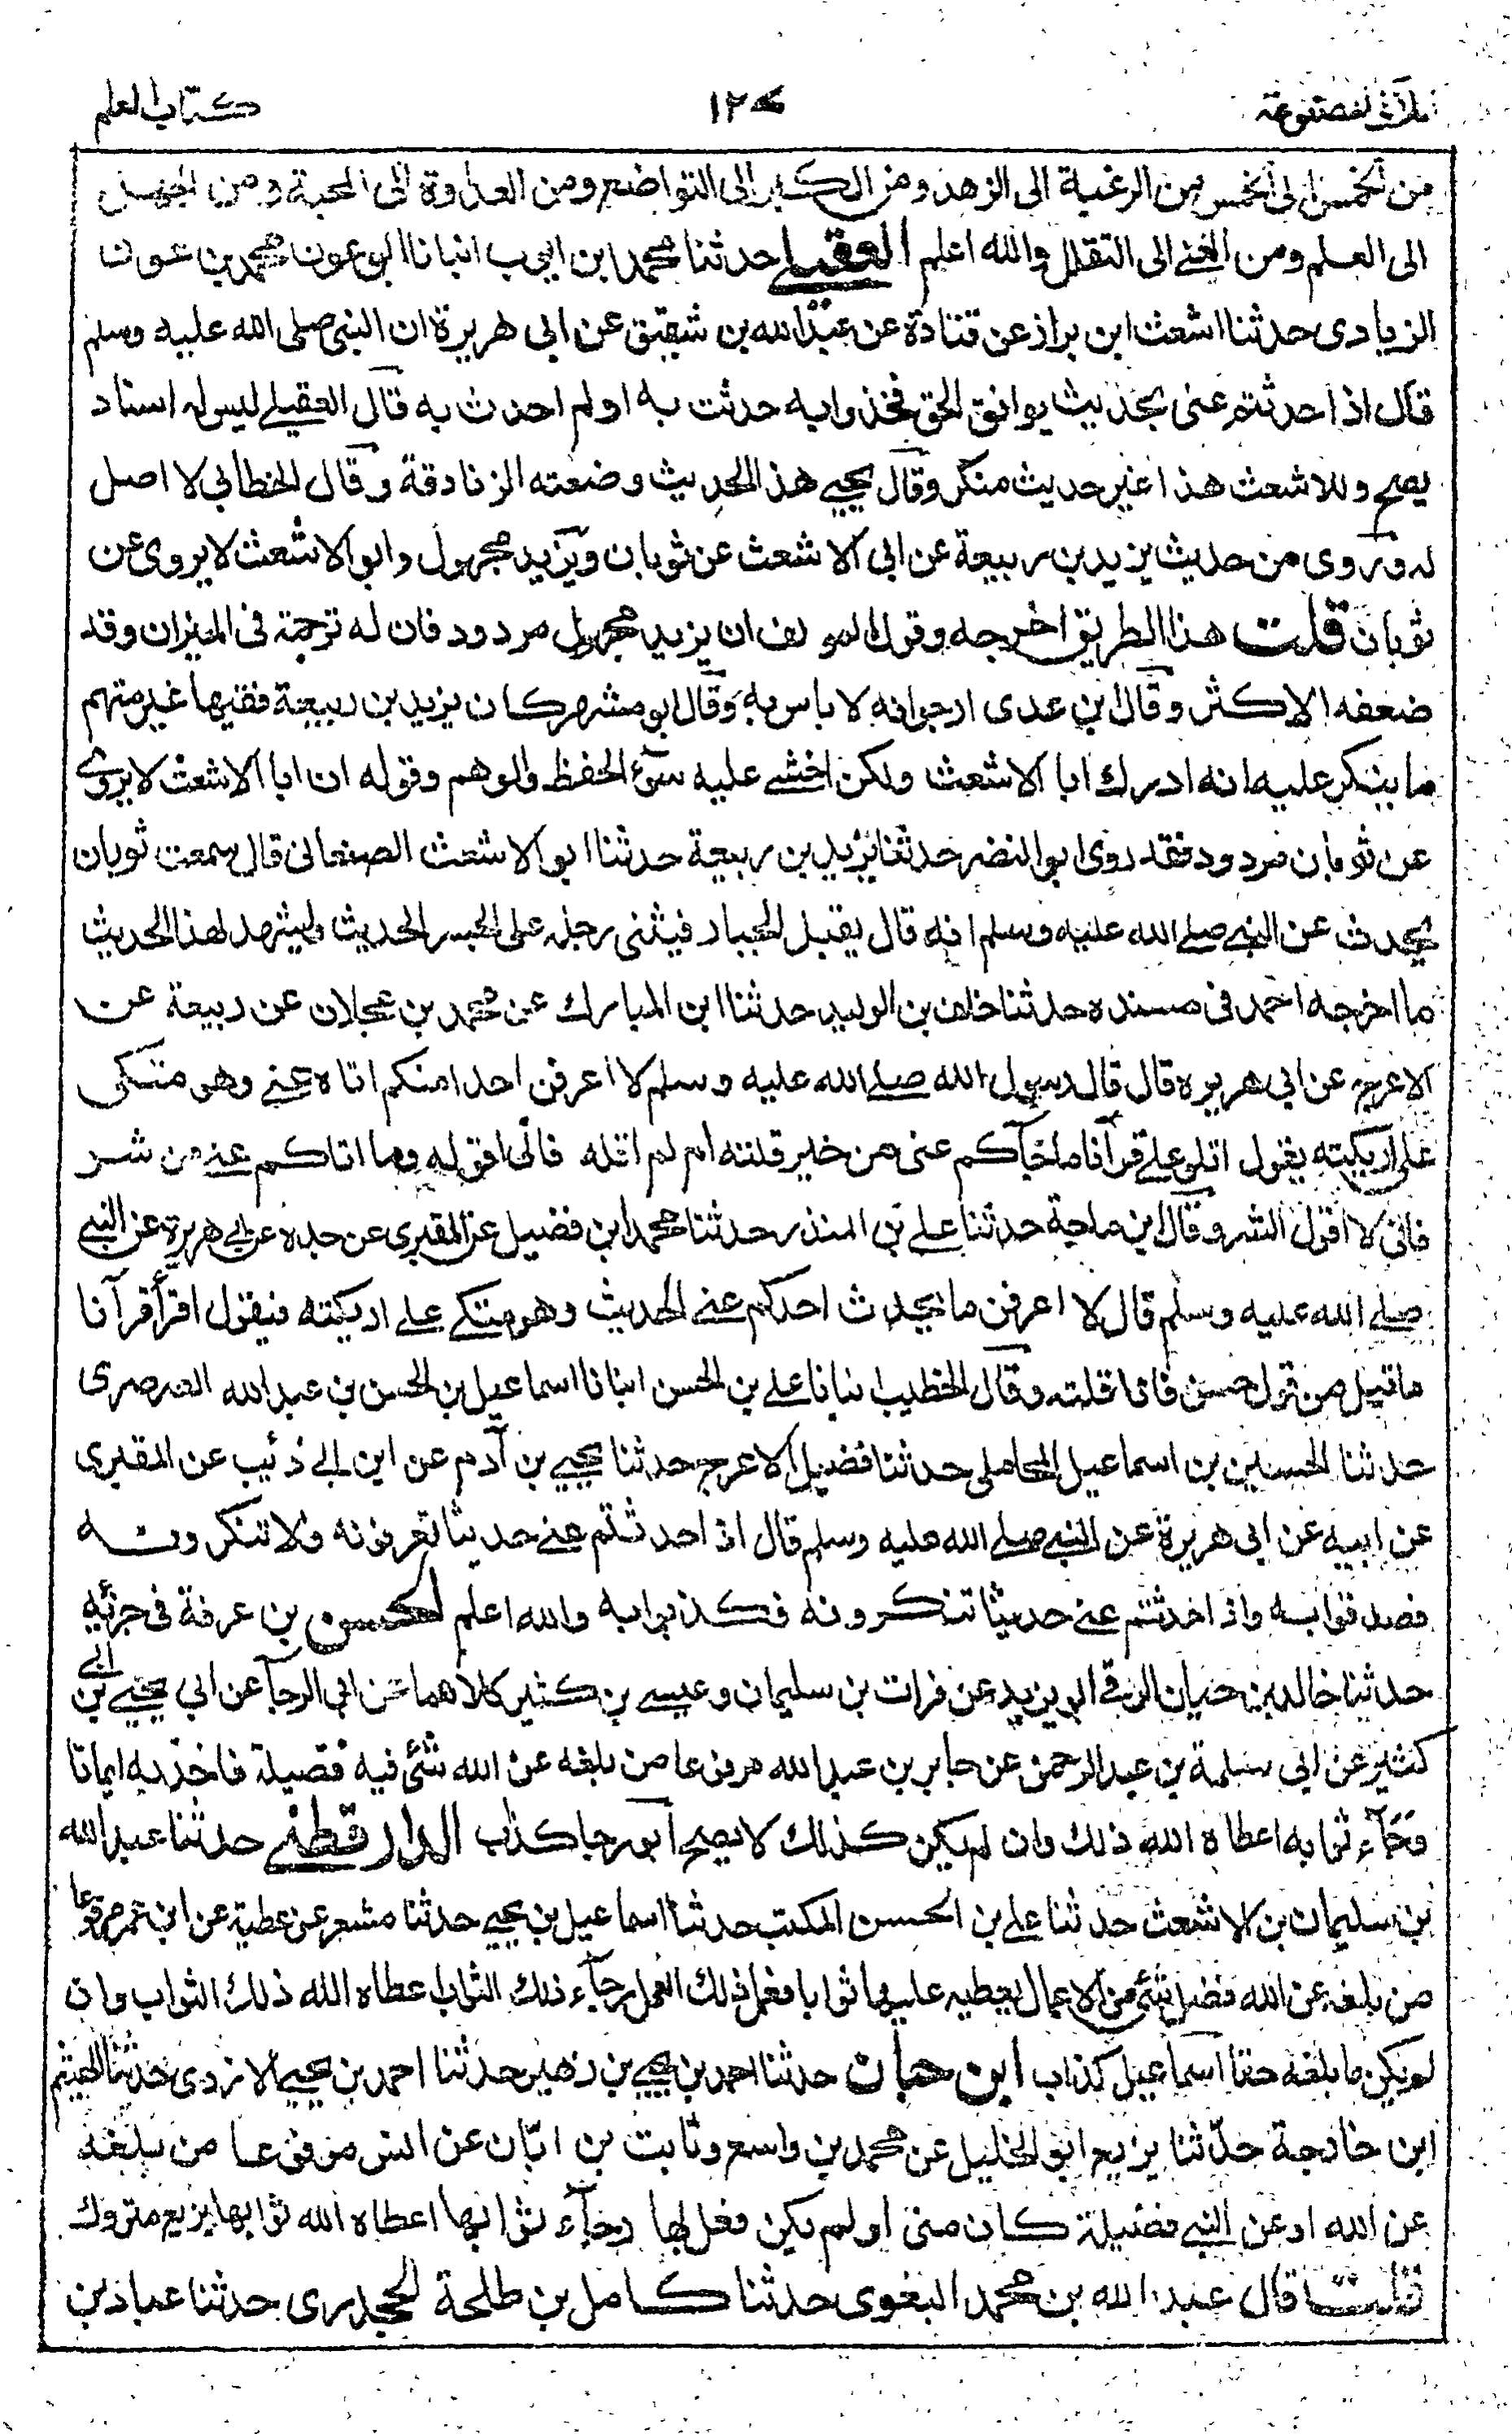 كتاب العلم
من الخمس الى الخمس من الرغبة الى الزهد ومن الكبر الى التواضع ومن العداوة الى المحبة ومن الجهل
الى العلم ومن الغنى الى التقلل والله اعلم العقيلے حدثنا محمد ابن ايوب انبانا ابو عون محمد بن عون
الزيادى حدثنا اشعث ابن براز عن قتادة عن عبد الله بن شقيق عن ابى هريرة ان النبى صلى الله عليه وسلم
قال اذا حدثتم عنى بحديث يوافق الحق فخذوا به حدثت به او لم احدث به قال العقيلے ليس له اسناد
يصح وللاشعث هذا غير حديث منكر وقال يحيے هذا الحديث وضعته الزنادقة وقال الخطابى لا اصل
له وروى من حديث يزيد بن ربيعة عن ابى الاشعث عن ثوبان ويزيد مجهول وابو الاشعث لا يروى عن
ثوبان قلت هذا الطريق اخرجه وقول المولف ان يزيد مجهول مردود فان له ترجمة فى الميزان وقد
ضعفه الاكثر وقال ابن عدى ارجو انه لا باس به وقال ابو مشهر كان يزيد بن ربيعة فقيها غير متهم
ما ينكر عليه انه ادرك ابا الاشعث ولكن اخشے عليه سوء الحفظ والوهم وقوله ان ابا الاشعث لا يروے
عن ثوبان مردود فقد روى ابو النضر حدثنا يزيد بن ربيعة حدثنا ابو الاشعث الصنعانى قال سمعت ثوبان
يحدث عن النبے صلے الله عليه وسلم انه قال يقبل الجبار فيثنى رجله على الجسر الحديث ويشهد لهذا الحديث
ما اخرجه احمد فى مسنده حدثنا خلف بن الوليد حدثنا ابن المبارك عن محمد بن عجلان عن ربيعة عن
الاعرج عن ابى هريره قال قال رسول الله صلے الله عليه وسلم لا اعرفن احدا منكم اتاه عنے وهو متكى
على اريكته يقول اتلو علے قرآنا ما جآكم عنى من خير قلته ام لم اقله فانى اقوله وما اتاكم عنے من شر
فانى لا اقول الشر وقال ابن ماجة حدثنا علے بن المنذر حدثنا محمد ابن فضيل عن المقبرى عن جده عن ابے هريرة عن النبے
صلے الله عليه وسلم قال لا اعرفن ما يحدث احدكم عنے الحديث وهو متكے علے اريكته فيقول اقرأ قرآنا
ما قيل من قول حسن فانا قلته وقال الخطيب انبانا علے بن الحسن انبانا اسماعيل بن الحسن بن عبد الله الصرصرى
حدثنا الحسين بن اسماعيل المحاملى حدثنا فضيل الاعرج حدثنا يحيے بن آدم عن ابن ابے ذئيب عن المقبرى
عن ابيه عن ابى هريرة عن النبے صلے الله عليه وسلم قال اذا حدثتم عنے حديثا تعرفونه ولا تنكرونه
فصدقوا به واذا حدثتم عنے حديثا تنكرونه فكذبوا به والله اعلم الحسن بن عرفة فى جزئه
حدثنا خالد بن حيان الرقے ابو يزيد عن فرات بن سليمان وعيسے بن كثير كلاهما عن ابى الرجآ عن ابى يحيے بن ابے
كثير عن ابى سلمة بن عبد الرحمن عن جابر بن عبد الله مرفوعا من بلغه عن الله شئ فيه فضيلة فاخذ به ايمانا
ورجآء ثوابه اعطاه الله ذلك وان لم يكن كذلك لا يصح ابو رجا كذاب الدارقطنے حدثنا عبد الله
بن سليمان بن الاشعث حدثنا علے بن الحسن المكتب حدثنا اسماعيل بن يحيے حدثنا مسعر عن عطية عن ابن عمر مرفوعا
من بلغه عن الله فضل شئ من الاعمال يعطيه عليها ثوابا فعمل ذلك العمل رجآء ذلك الثواب اعطاه الله ذلك الثواب وان
لم يكن ما بلغه حقا اسماعيل كذاب ابن حبان حدثنا احمد بن يحيے بن زهير حدثنا احمد بن يحيے الازدى حدثنا الهيثم
ابن خارجة حدثنا بزيع ابو الخليل عن محمد بن واسع وثابت بن ابان عن انس مرفوعا من بلغه
عن الله او عن النبے فضيلة كان منى او لم يكن فعل بها رجآء ثوابها اعطاه الله ثوابها بزيع متروك
قلت قال عبد الله بن محمد البغوى حدثنا كامل بن طلحة الجحدرى حدثنا عباد بن